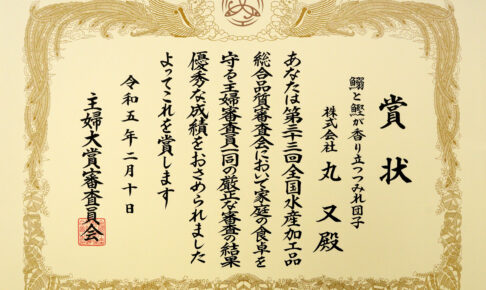 賞状
鰯と鰹が香り立つつみれ団子
株式会社 丸又殿
あなたは第三十三回全国水産加工品
総合品質審査会において家庭の食卓を
守る主婦審査員一同の厳正な審査の結果
優秀な成績をおさめられました
よってこれを賞します
令和五年二月十日
主婦大賞審査員会